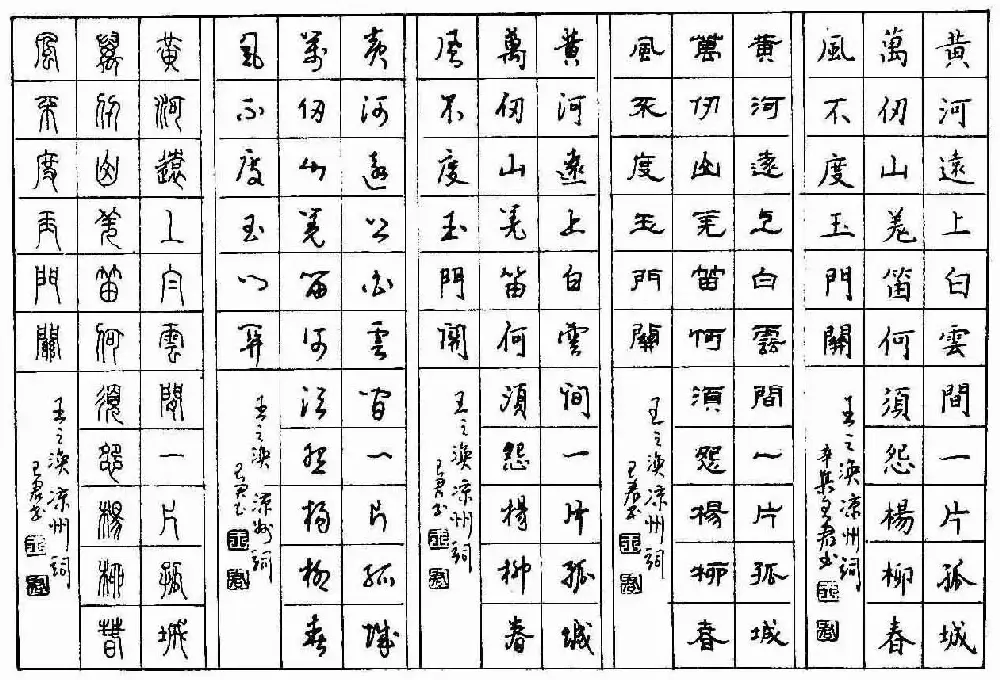 黄河遠上白雲間一片孤城
萬仞山羌笛何須怨楊柳春
風不度玉門關
王之渙凉州詞
黄河遠上白雲間一片孤城
萬仞山羌笛何須怨楊柳春
風不度玉門關
王之渙凉州詞
黄河遠上白雲間一片孤城
萬仞山羌笛何須怨楊柳春
風不度玉門關
王之渙凉州詞
黄河遠上白雲間一片孤城
萬仞山羌笛何須怨楊柳春
風不度玉門關
王之渙凉州詞
黄河遠上白雲間一片孤城
萬仞山羌笛何須怨楊柳春
風不度玉門關
王之渙凉州詞